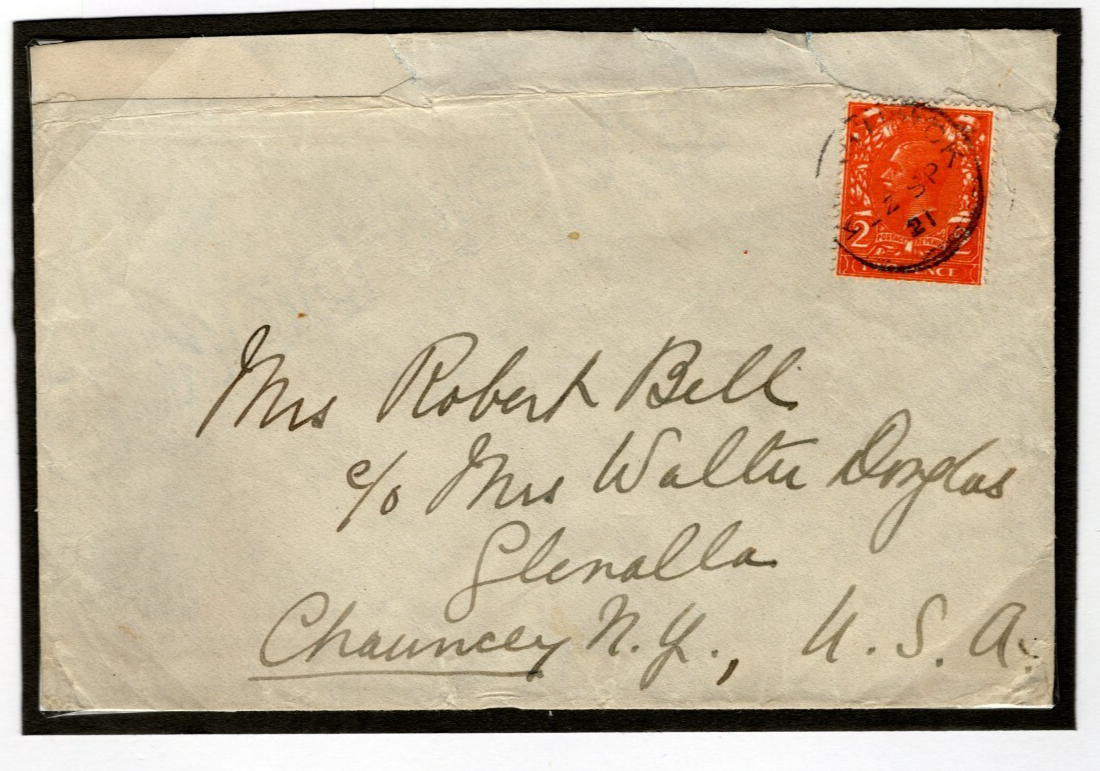 12 SP
21
2 POSTAGE REVENUE 2
Mrs Robert Bell
c/o Mrs Walter Douglas
Glenalla
Chauncey N.Y., U.S.A.